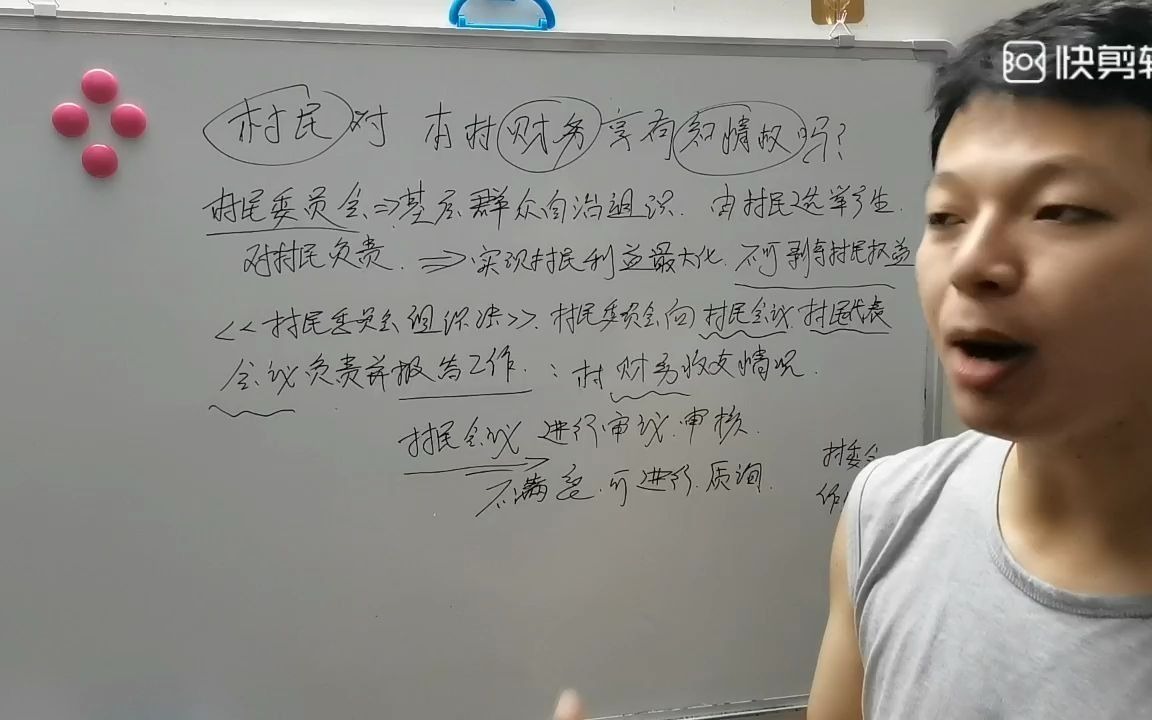 快剪辑
村民对 本村财务享有知情权吗?
村民委员会⇒基层群众自治组织. 由村民选举产生.
对村民负责. ⇒实现村民利益最大化. 不可剥夺村民权益
<<村民委员会组织法>>. 村民委员会向村民会议.村民代表
会议负责并报告工作. : 村财务收支情况.
村民会议 进行审议.审核.
不满意.可进行.质询.
村委会
作